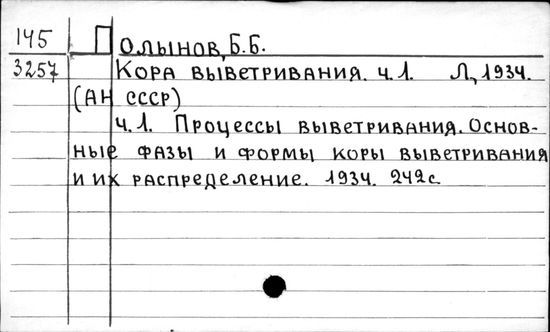 145 Полынов, Б.Б.
3257 Кора выветривания. ч.1. Л., 1934.
(АН СССР)
ч.1. Процессы выветривания. Основ-
ные фазы и формы коры выветривания
и их распределение. 1934. 242с.